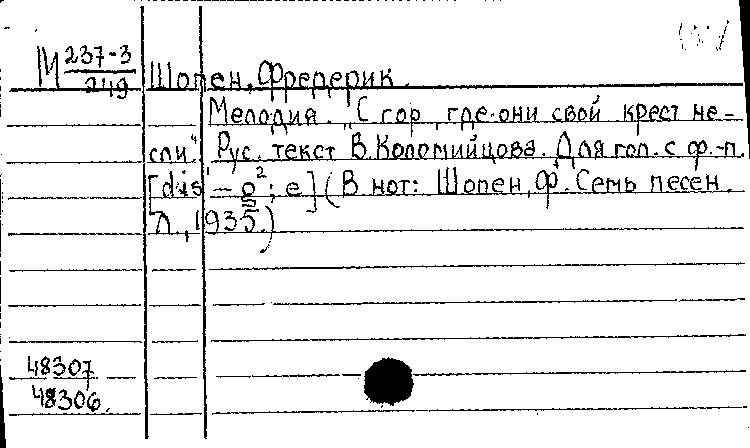 М 237-3
249
Шопен, Фредерик.
Мелодия. "С гор, где они свой крест не-
сли". Рус. текст В. Коломийцова. Для гол. с ф.-п.
[dis¹ – g²; e] (В нот: Шопен, Ф. Семь песен.
Л., 1935.)
48307
48306.